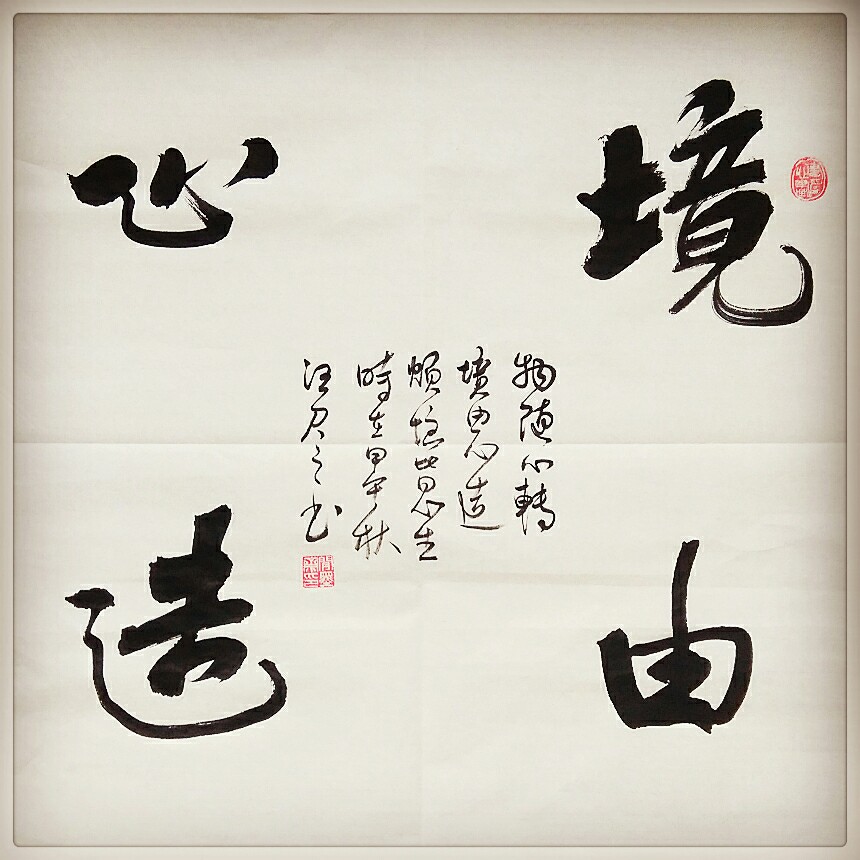 境由
心造
物随心轉
境由心造
煩惱皆由心生
時在甲午秋
汪君之书